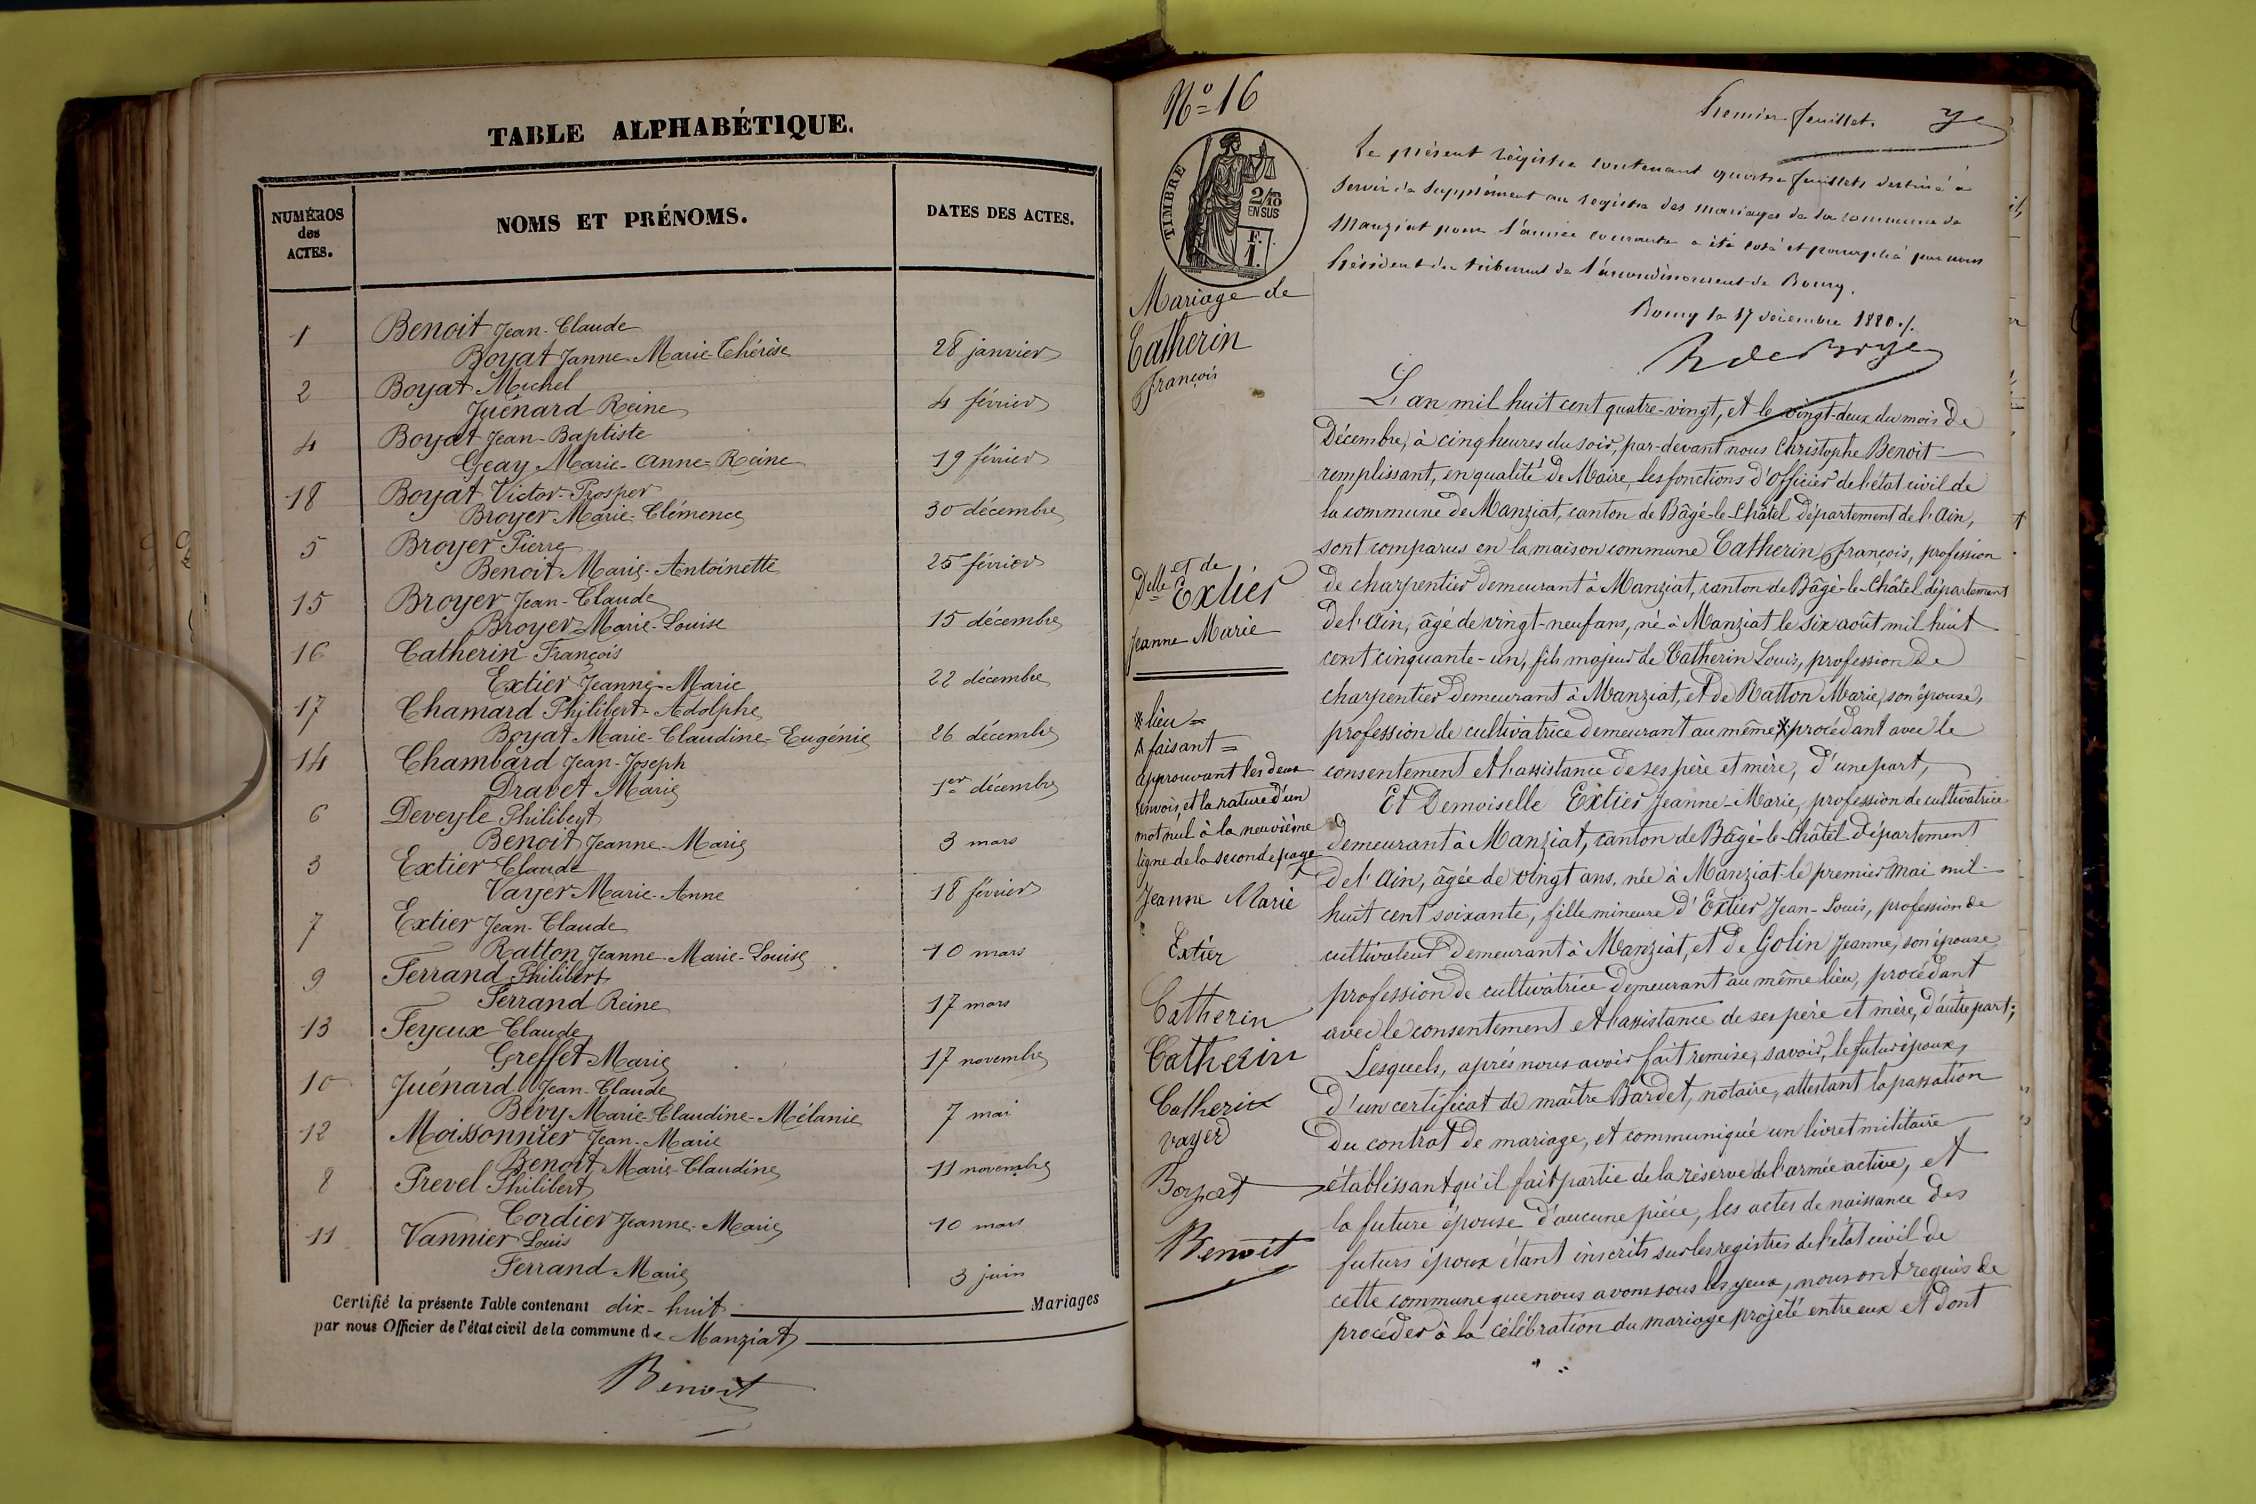 TABLE ALPHABÉTIQUE.
NUMÉROS des ACTES.
NOMS ET PRÉNOMS.
DATES DES ACTES.
1 Benoit Jean-Claude
Boyat Janne-Marie-Thérèse 28 janvier
2 Boyat Michel
Juénard Reine 4 février
4 Boyat Jean-Baptiste
Geay Marie-Anne-Reine 19 février
18 Boyat Victor-Prosper
Broyer Marie-Clémence 30 décembre
5 Broyer Pierre
Benoit Marie-Antoinette 25 février
15 Broyer Jean-Claude
Broyer Marie-Louise 15 décembre
16 Catherin François
Extier Jeanne-Marie 22 décembre
17 Chamard Philibert-Adolphe
Boyat Marie-Claudine-Eugénie 26 décembre
14 Chambard Jean-Joseph
Dravet Marie 1er décembre
6 Deveyle Philibert
Benoit Jeanne-Marie 3 mars
3 Extier Claude
Vayer Marie-Anne 18 février
7 Extier Jean-Claude
Ratton Jeanne-Marie-Louise 10 mars
9 Ferrand Philibert
Ferrand Reine 17 mars
13 Feyeux Claude
Greffet Marie 17 novembre
10 Juénard Jean-Claude
Bévy Marie-Claudine-Mélanie 7 mai
12 Moissonnier Jean-Marie
Benoit Marie-Claudine 11 novembre
8 Prevel Philibert
Cordier Jeanne-Marie 10 mars
11 Vannier Louis
Ferrand Marie 3 juin
Certifié la présente Table contenant dix-huit Mariages
par nous Officier de l'état civil de la commune de Manziat
Benoit
No 16
TIMBRE
2/10 EN SUS
F. 1.
Mariage de
Catherin
François
et de
Delle Extier
Jeanne-Marie
* lieu =
∆ faisant =
approuvant les deux
renvois, et la rature d'un
mot nul à la neuvième
ligne de la seconde page
Jeanne Marie
Extier
Catherin
Catherin
Catherin
vayer
Boyat
Benoit
Premier feuillet.
Le présent régistre contenant quatre feuillets destiné à
servir de supplément au registre des mariages de la commune de
Manziat pour l'année courante a été coté et paraphé par nous
Président du tribunal de l'arrondissement de Bourg.
Bourg le 17 décembre 1880 ./.
L'an mil huit cent quatre-vingt, et le vingt-deux du mois de
Décembre, à cinq heures du soir, par-devant nous Christophe Benoit
remplissant, en qualité de Maire, les fonctions d'Officier de l'état civil de
la commune de Manziat, canton de Bâgé-le-Châtel département de l'Ain,
sont comparus en la maison commune Catherin François, profession
de charpentier demeurant à Manziat, canton de Bâgé-le-Châtel département
de l'Ain, âgé de vingt-neuf ans, né à Manziat le six août mil huit
cent cinquante-un, fils majeur de Catherin Louis, profession de
charpentier demeurant à Manziat, et de Ratton Marie, son épouse,
profession de cultivatrice demeurant au même * procédant avec le
consentement et l'assistance de ses père et mère, d'une part,
Et Demoiselle Extier Jeanne-Marie, profession de cultivatrice
demeurant à Manziat, canton de Bâgé-le-Châtel département
de l'Ain, âgée de vingt ans, née à Manziat le premier mai mil
huit cent soixante, fille mineure d'Extier Jean-Louis, profession de
cultivateur demeurant à Manziat, et de Golin Jeanne, son épouse,
profession de cultivatrice demeurant au même lieu, procédant
avec le consentement et l'assistance de ses père et mère, d'autre part;
Lesquels, après nous avoir fait remise, savoir, le futur époux,
d'un certificat de maître Bardet, notaire, attestant la passation
du contrat de mariage, et communiqué un livret militaire
établissant qu'il fait partie de la réserve de l'armée active, et
la future épouse d'aucune pièce, les actes de naissance des
futurs époux étant inscrits sur les registres de l'état civil de
cette commune que nous avons sous les yeux, nous ont requis de
procéder à la célébration du mariage projeté entre eux et dont